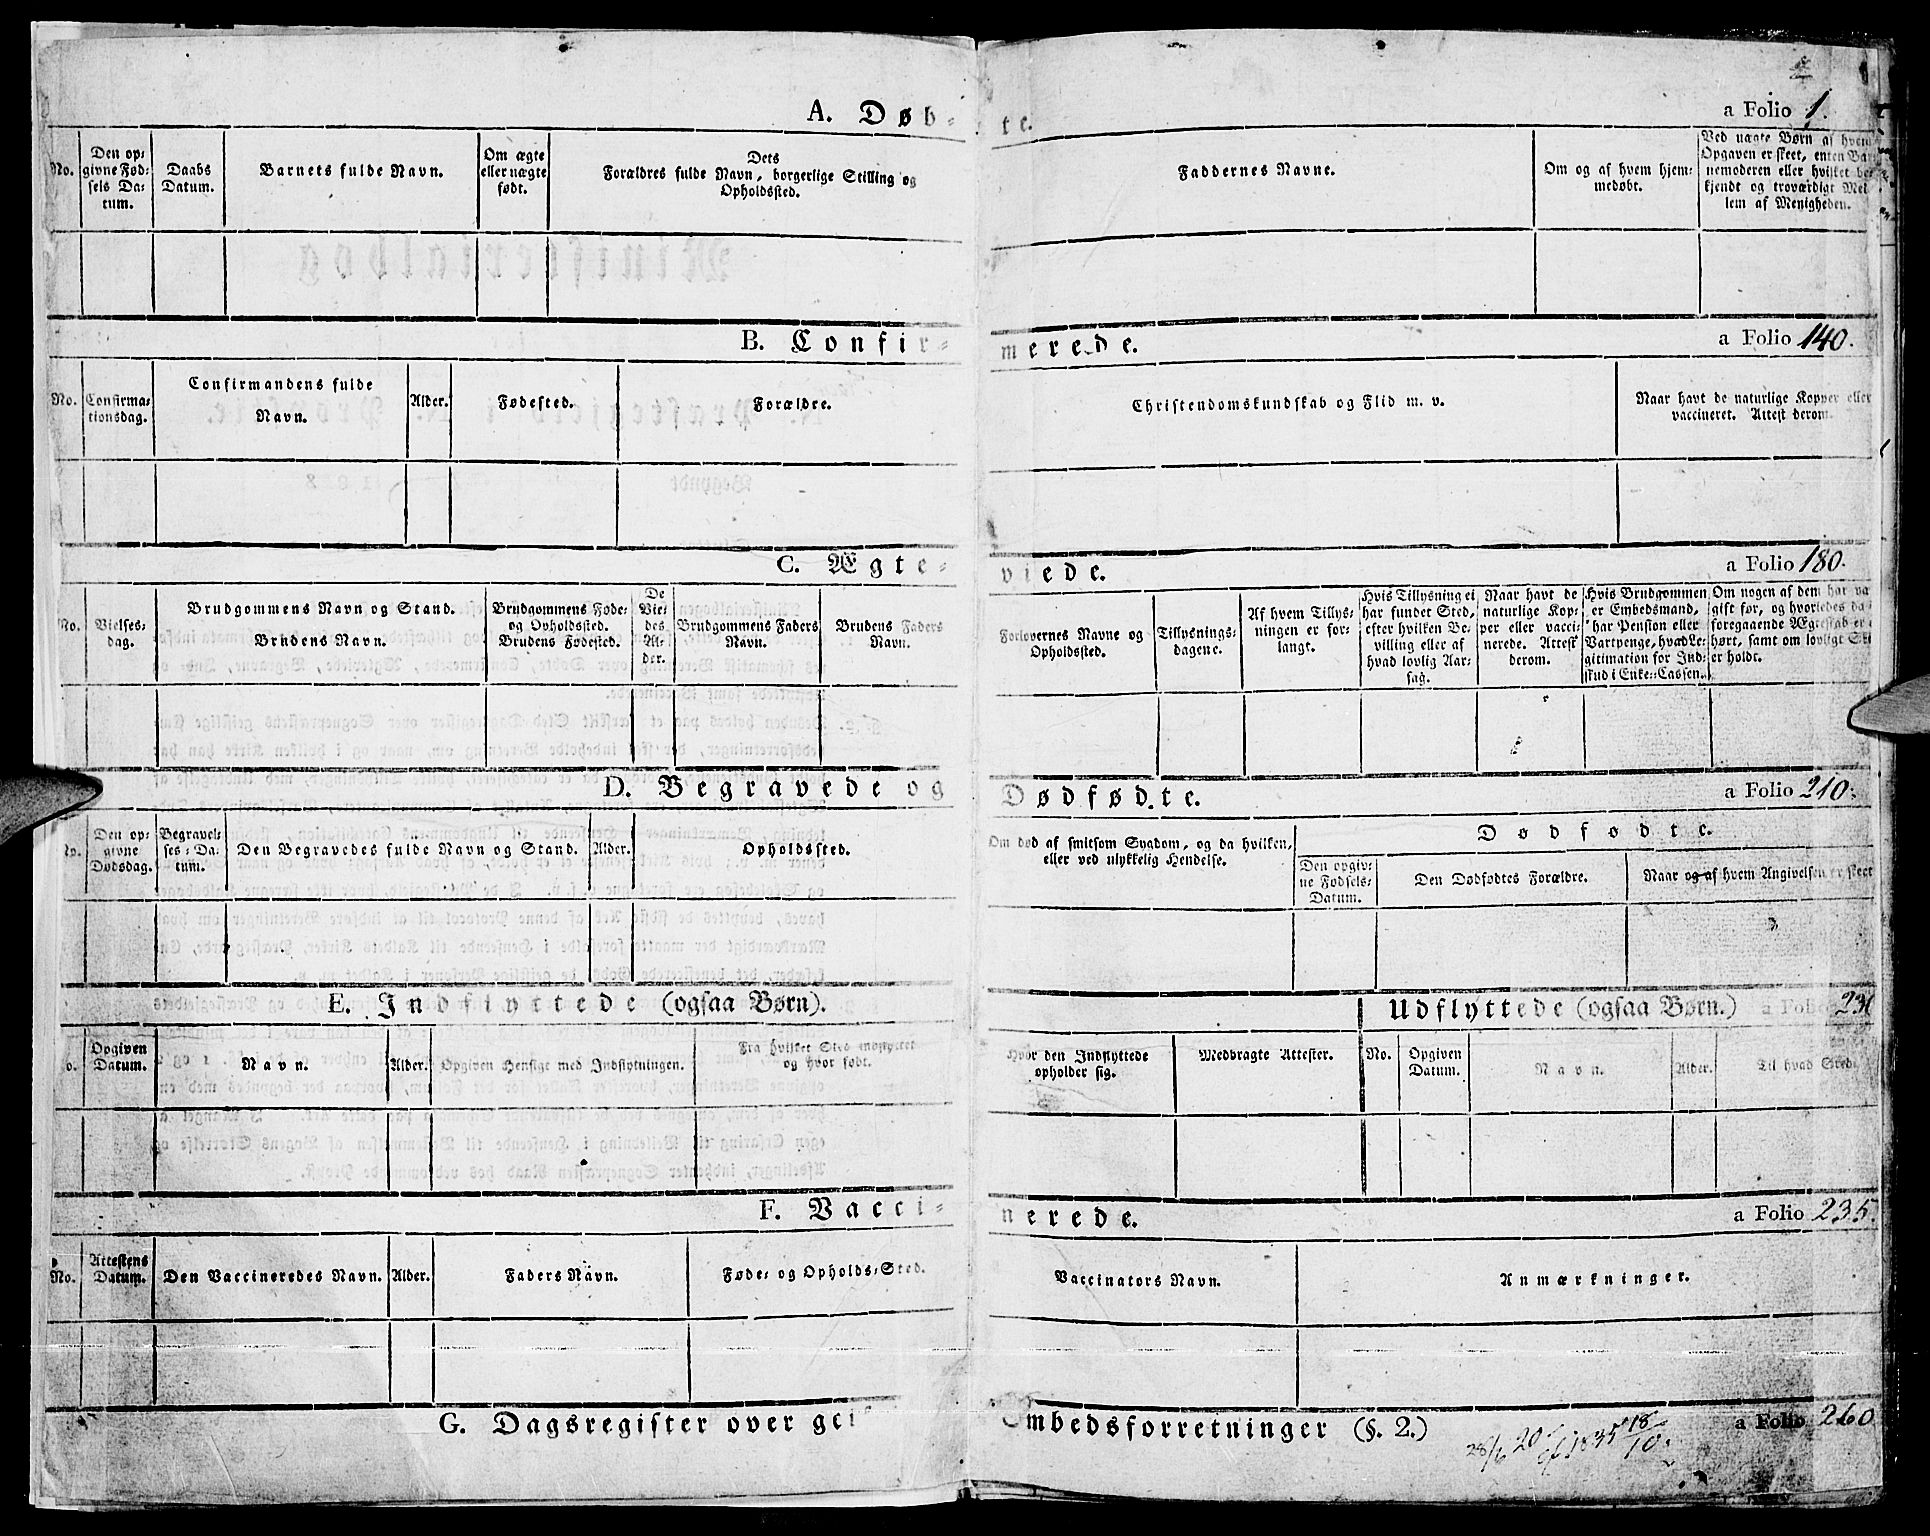 A. Døb-te. a Folio 1.
No. | Den op-givne Fød-sels Da-tum. | Daabs Datum. | Barnets fulde Navn. | Om ægte eller uægte født. | Dets Forældres fulde Navn, borgerlige Stilling og Opholdssted. | Faddernes Navne. | Om og af hvem hjem-medøbt. | Ved uægte Børn af hvem Opgaven er skeet, enten Bar-nemoderen eller hvilket be-kjendt og troværdigt Mel-lem af Menigheden.
B. Confir-merede. a Folio 140.
No. | Confirma-tionsdag. | Confirmandens fulde Navn. | Alder. | Fødested. | Forældre. | Christendomskundskab og Flid m. v. | Naar havt de naturlige Kopper eller vaccineret. Attest derom.
C. Ægte-viede. a Folio 180.
No. | Vielses-dag. | Brudgommens Navn og Stand. Brudens Navn. | Brudgommens Føde- og Opholdssted. Brudens Fødested. | De Vie-des Al-der. | Brudgommens Faders Navn. | Brudens Faders Navn. | Forlovernes Navne og Opholdssted. | Tillysnings-dagene. | Af hvem Tillys-ningen er for-langt. | Hvis Tillysning ei har fundet Sted, efter hvilken Be-villing eller af hvad lovlig Aar-sag. | Naar havt de naturlige Kop-per eller vacci-nerede. Attest derom. | Hvis Brudgommen er Embedsmand, har Pension eller Vartpenge, hvad Le-gitimation for Ind-skud i Enke-Cassen. | Om nogen af dem har va gift før, og hvorledes da foregaaende Ægteskab er hørt, samt om lovligt Ski er holdt.
D. Begravede og Dødfødte. a Folio 210.
No. | Den op-givne Dødsdag. | Begravel-ses-Da-tum. | Den Begravedes fulde Navn og Stand. | Alder. | Opholdssted. | Om død af smitsom Sygdom, og da hvilken, eller ved ulykkelig Hendelse. | Dødfødte. | Den opgiv-ne Fødsels-Datum. | Den Dødfødtes Forældre. | Naar og af hvem Angivelsen er skeet
E. Indflyttede (ogsaa Børn). Udflyttede (ogsaa Børn.) a Folio 230
No. | Opgiven Datum. | Navn. | Alder. | Opgiven Hensigt med Indflytningen. | Fra hvilket Sted indflyttet og hvor født. | Hvor den Indflyttede opholder sig. | Medbragte Attester. | No. | Opgiven Datum. | Navn. | Alder. | Til hvad Sted.
F. Vacci-nerede. a Folio 235.
No. | Attestens Datum. | Den Vaccineredes Navn. | Alder. | Faders Navn. | Føde- og Opholds-Sted. | Vaccinators Navn. | Anmærkninger.
G. Dagsregister over gei Embedsforretninger (§. 2.) a Folio 260